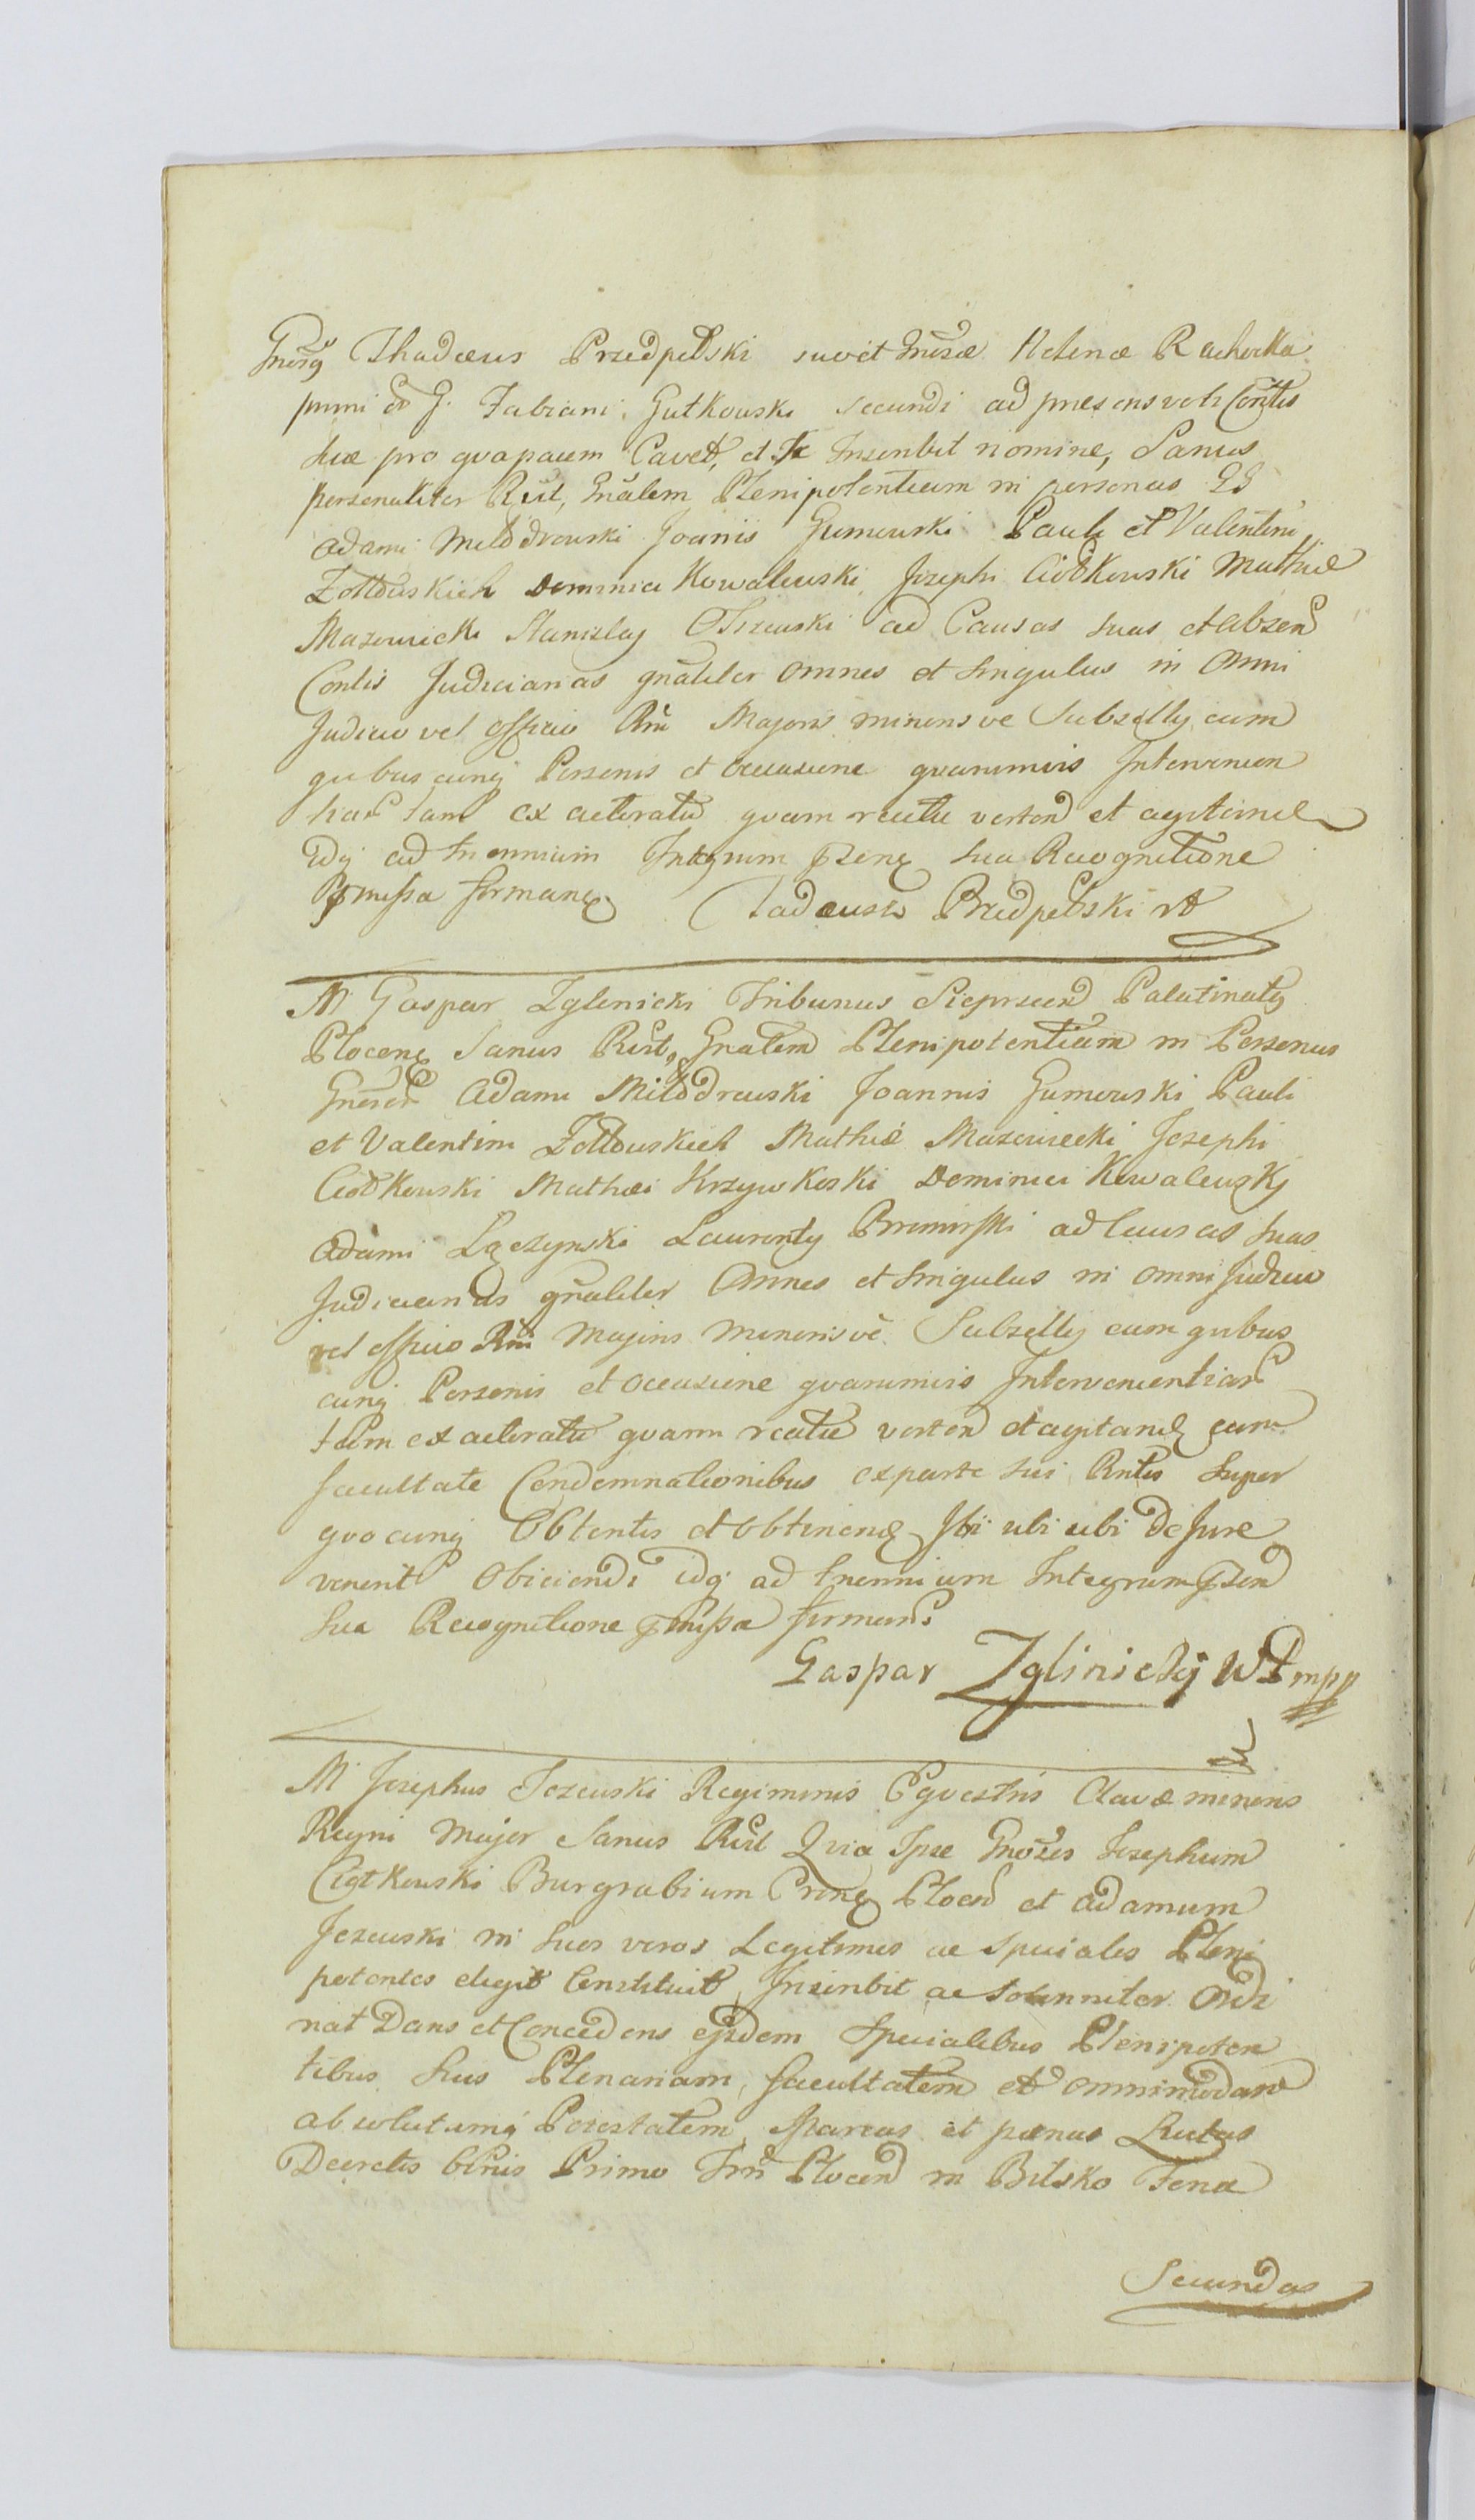 Gnosus Thadæus Przedpełski suo et Gnosæ Helenæ Rachocka
primi et G. Fabiani Gutkowski secundi ad præsens voti Contis
suæ pro qva parem Cavet, et se Inscribit nomine, Sanus
personaliter Rcit, Gnãlem Plenipotentiam in personas GG
Adami Młodrowski Joañis Gumowski Pauli et Valentini
Zołtowskich Dominici Kowalewski, Josephi Ciółkowski Mathiæ
Mazowiecki Stanislaj Olszewski ad Causas suas et absen
Contis Judiciarias gñaliter omnes et singulas in Omni
Judicio vel officio Rni Majoris minorisve Subsellij cum
qvibus cunq Personis et occasione qvarumvis Intervenien
tiar tam ex actoratu qvam reatu verten et agitand
idq ad triennium Integrum psens sua Recognitione
pmissa firmans Tadeusz Przedpełski
M Gaspar Zglenicki Tribunus Sieprcen Palatinatus
Plocens Sanus Rcit, Gnalem Plenipotentiam in Personas
Gnosor Adami Młodrowski Joannis Gumowski Pauli
et Valentini Zołtowskich Mathiæ Mazowiecki Josephi
Ciołkowski Mathæi Krzywkoski Dominici Kowalewskj
Adami Łączynski Laurentij ad Causas suas
Judiciarias gñaliter Omnes et singulas in omni Judicio
vel officio Rni Majoris Minorisve Subsellij cum qvibus
cunq Personis et occasione qvarumvis Intervenientiar
tam ex actoratu qvam reatu verten et agitand cum
facultate Condemnationibus ex parte sui Rntis super
qvocunq Obtentis et obtinend Ibi ubi ubi de Jure
venerit Obiiciendi idq ad triennium Integrum psen
sua Recognitione pmissa firmans
Gaspar Zglinickij WP mpp
M Josephus Jezewski Regiminis Eqvestris Clavæ minoris
Regni Major Sanus Rcit Qvia Ipse Gnoses Josephum
Ciołkowski Burgrabium Crens Plocen et Adamum
Jezewski in suos veros Legitimos ac speciales Pleni
potentes elegit Constituit Inscribit ac solenniter Ordi
nat Dans et Concedens ejsdem Specialibus Plenipoten
tibus suis Plenariam, facultatem et omnimodam
absolutamq Potestatem, Marcas et pænas Luitas
Decretis binis Primo Trri Plocen in Bilsko Feria
Secundas